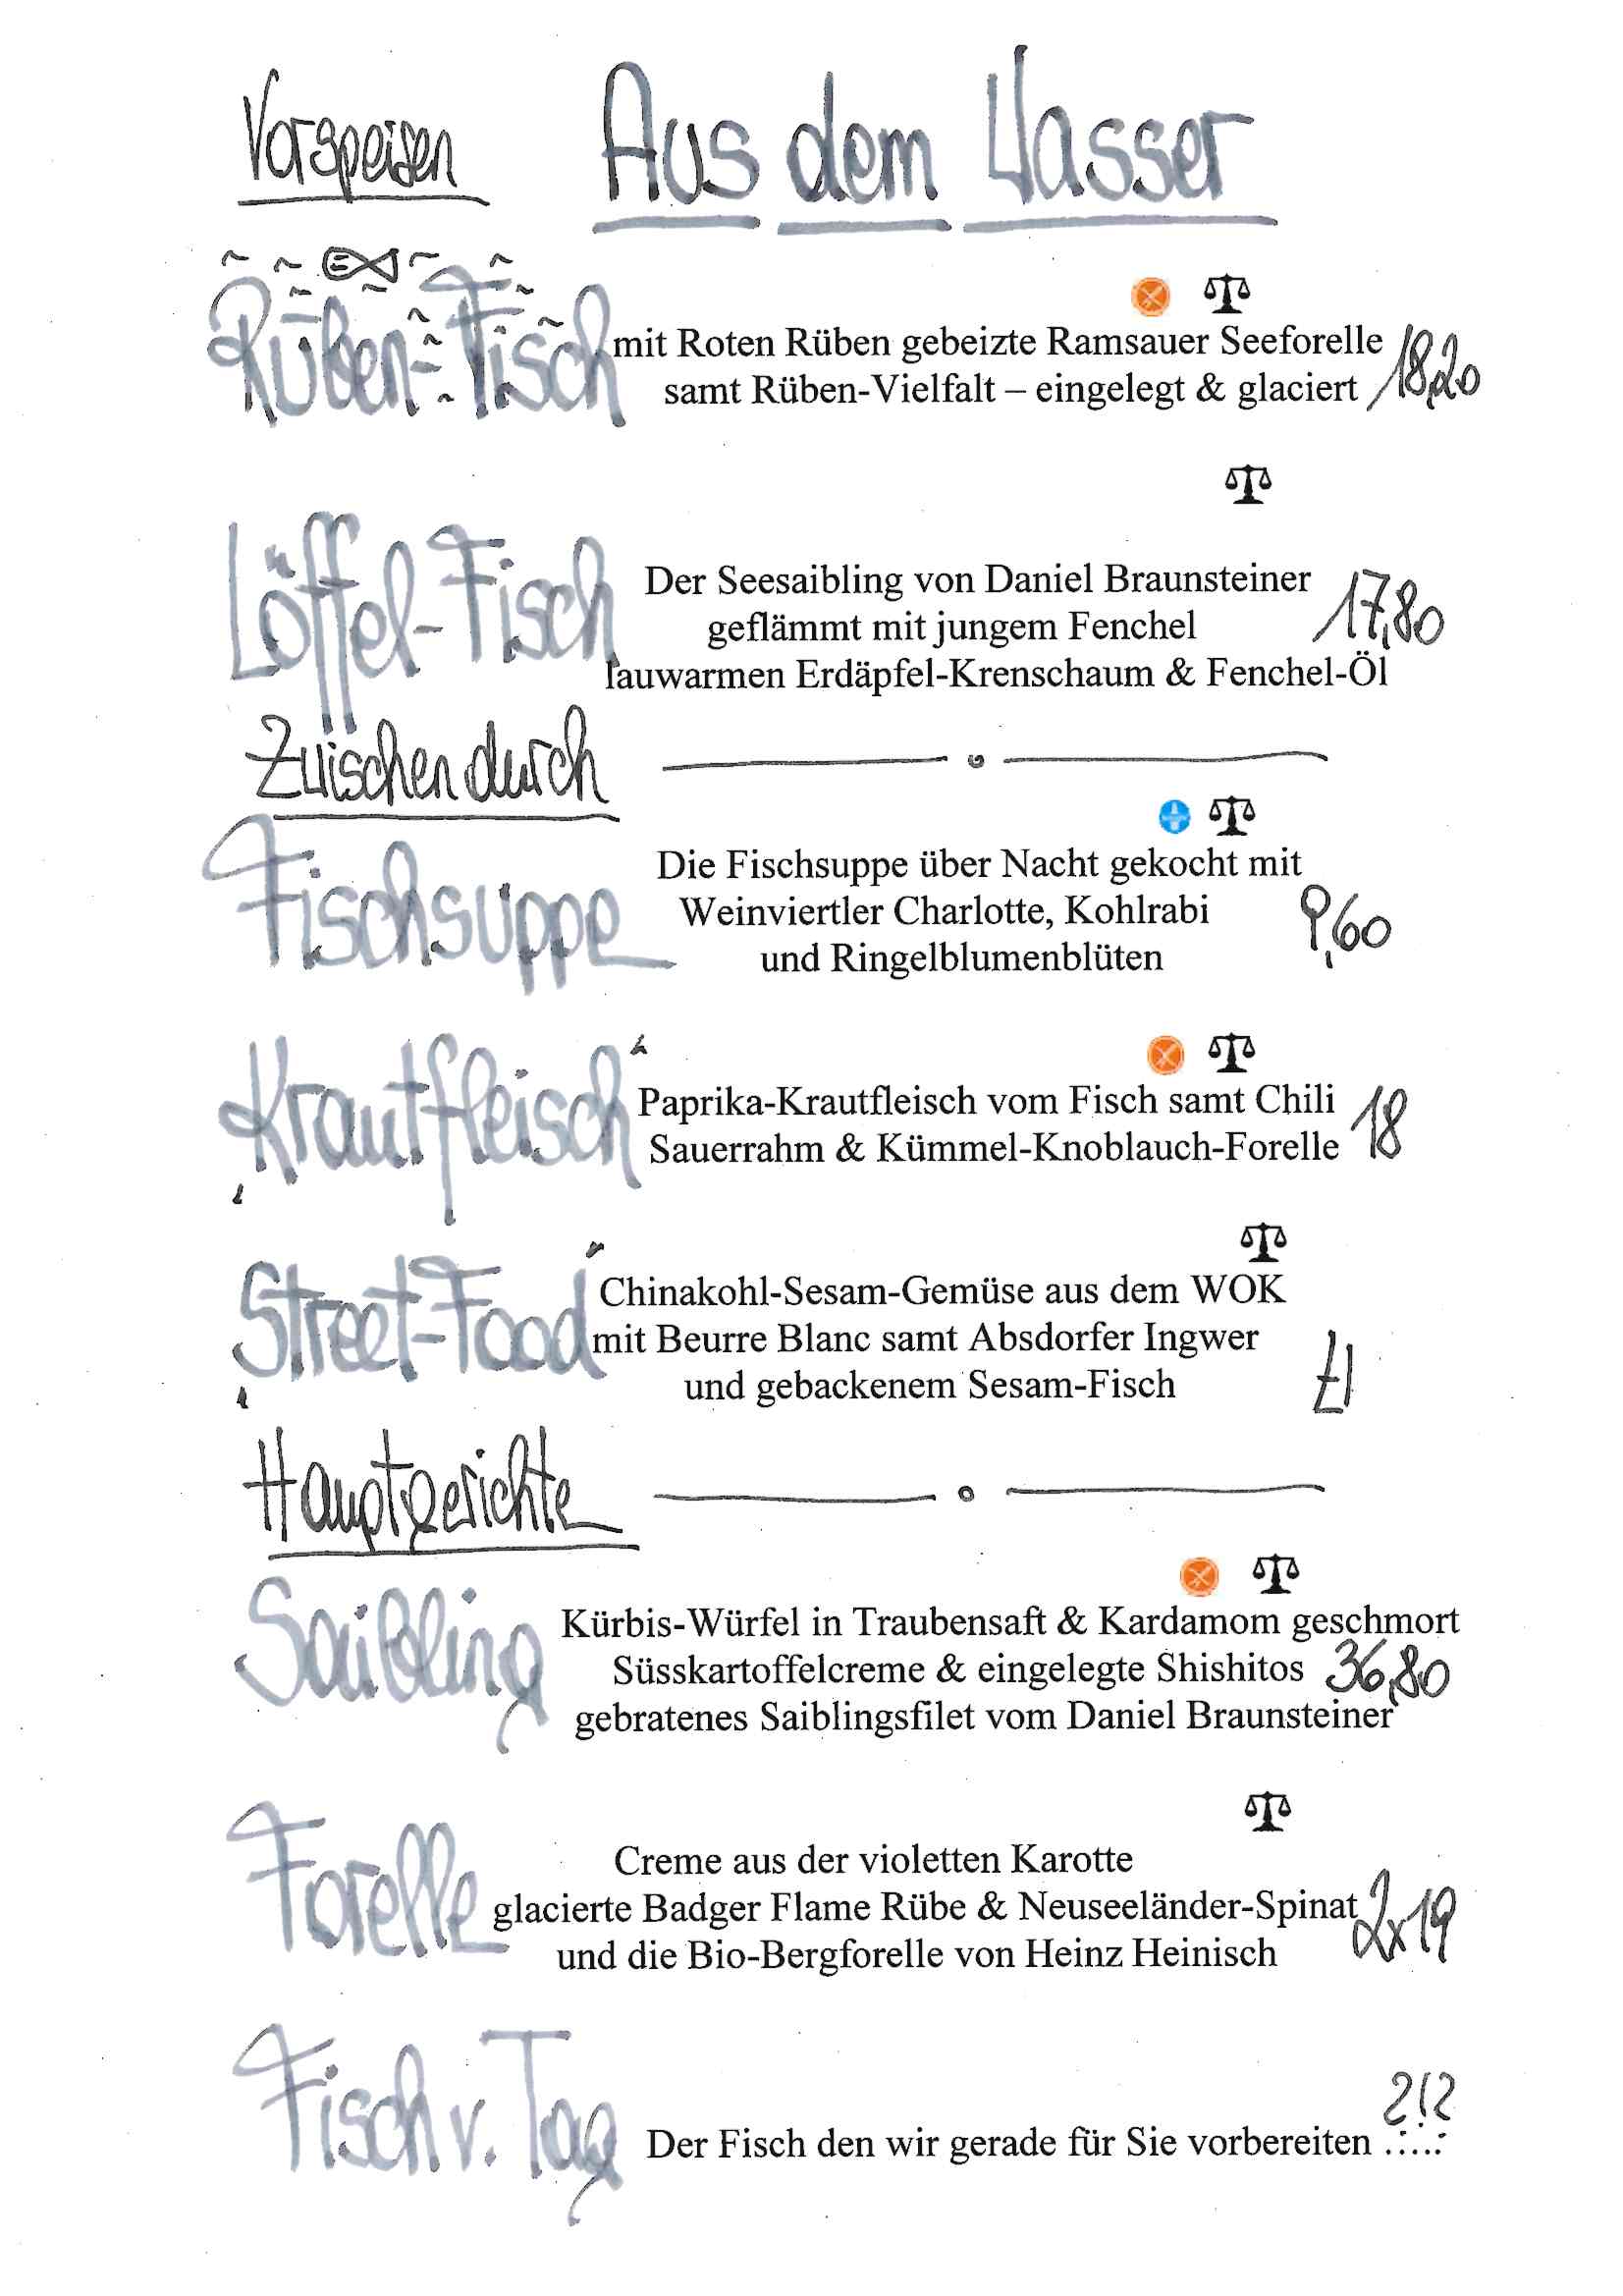 Vorspeisen Aus dem Wasser
Rüben-Fisch
mit Roten Rüben gebeizte Ramsauer Seeforelle
samt Rüben-Vielfalt – eingelegt & glaciert 18,20
Löffel-Fisch
Der Seesaibling von Daniel Braunsteiner
geflämmt mit jungem Fenchel 17,80
lauwarmen Erdäpfel-Krenschaum & Fenchel-Öl
Zwischendurch
Fischsuppe
Die Fischsuppe über Nacht gekocht mit
Weinviertler Charlotte, Kohlrabi 9,60
und Ringelblumenblüten
Krautfleisch
Paprika-Krautfleisch vom Fisch samt Chili 18
Sauerrahm & Kümmel-Knoblauch-Forelle
Street-Food
Chinakohl-Sesam-Gemüse aus dem WOK
mit Beurre Blanc samt Absdorfer Ingwer
und gebackenem Sesam-Fisch
Hauptgerichte
Saibling
Kürbis-Würfel in Traubensaft & Kardamom geschmort
Süsskartoffelcreme & eingelegte Shishitos 36,80
gebratenes Saiblingsfilet vom Daniel Braunsteiner
Forelle
Creme aus der violetten Karotte
glacierte Badger Flame Rübe & Neuseeländer-Spinat 2x19
und die Bio-Bergforelle von Heinz Heinisch
Fisch v. Tag
Der Fisch den wir gerade für Sie vorbereiten .....